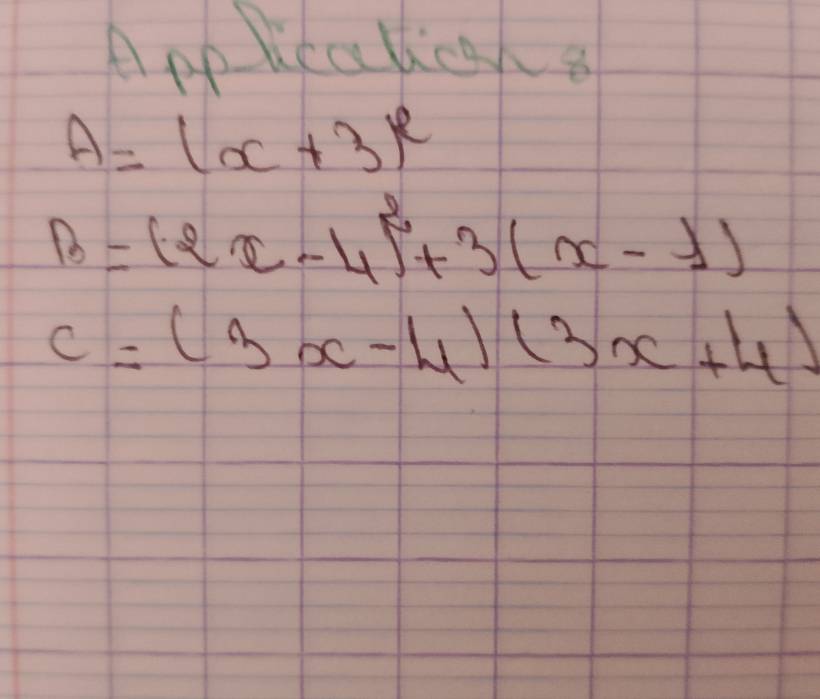 Application :
A = (x + 3)²
B = (2x - 4)² + 3(x - 1)
C = (3x - 4)(3x + 4)